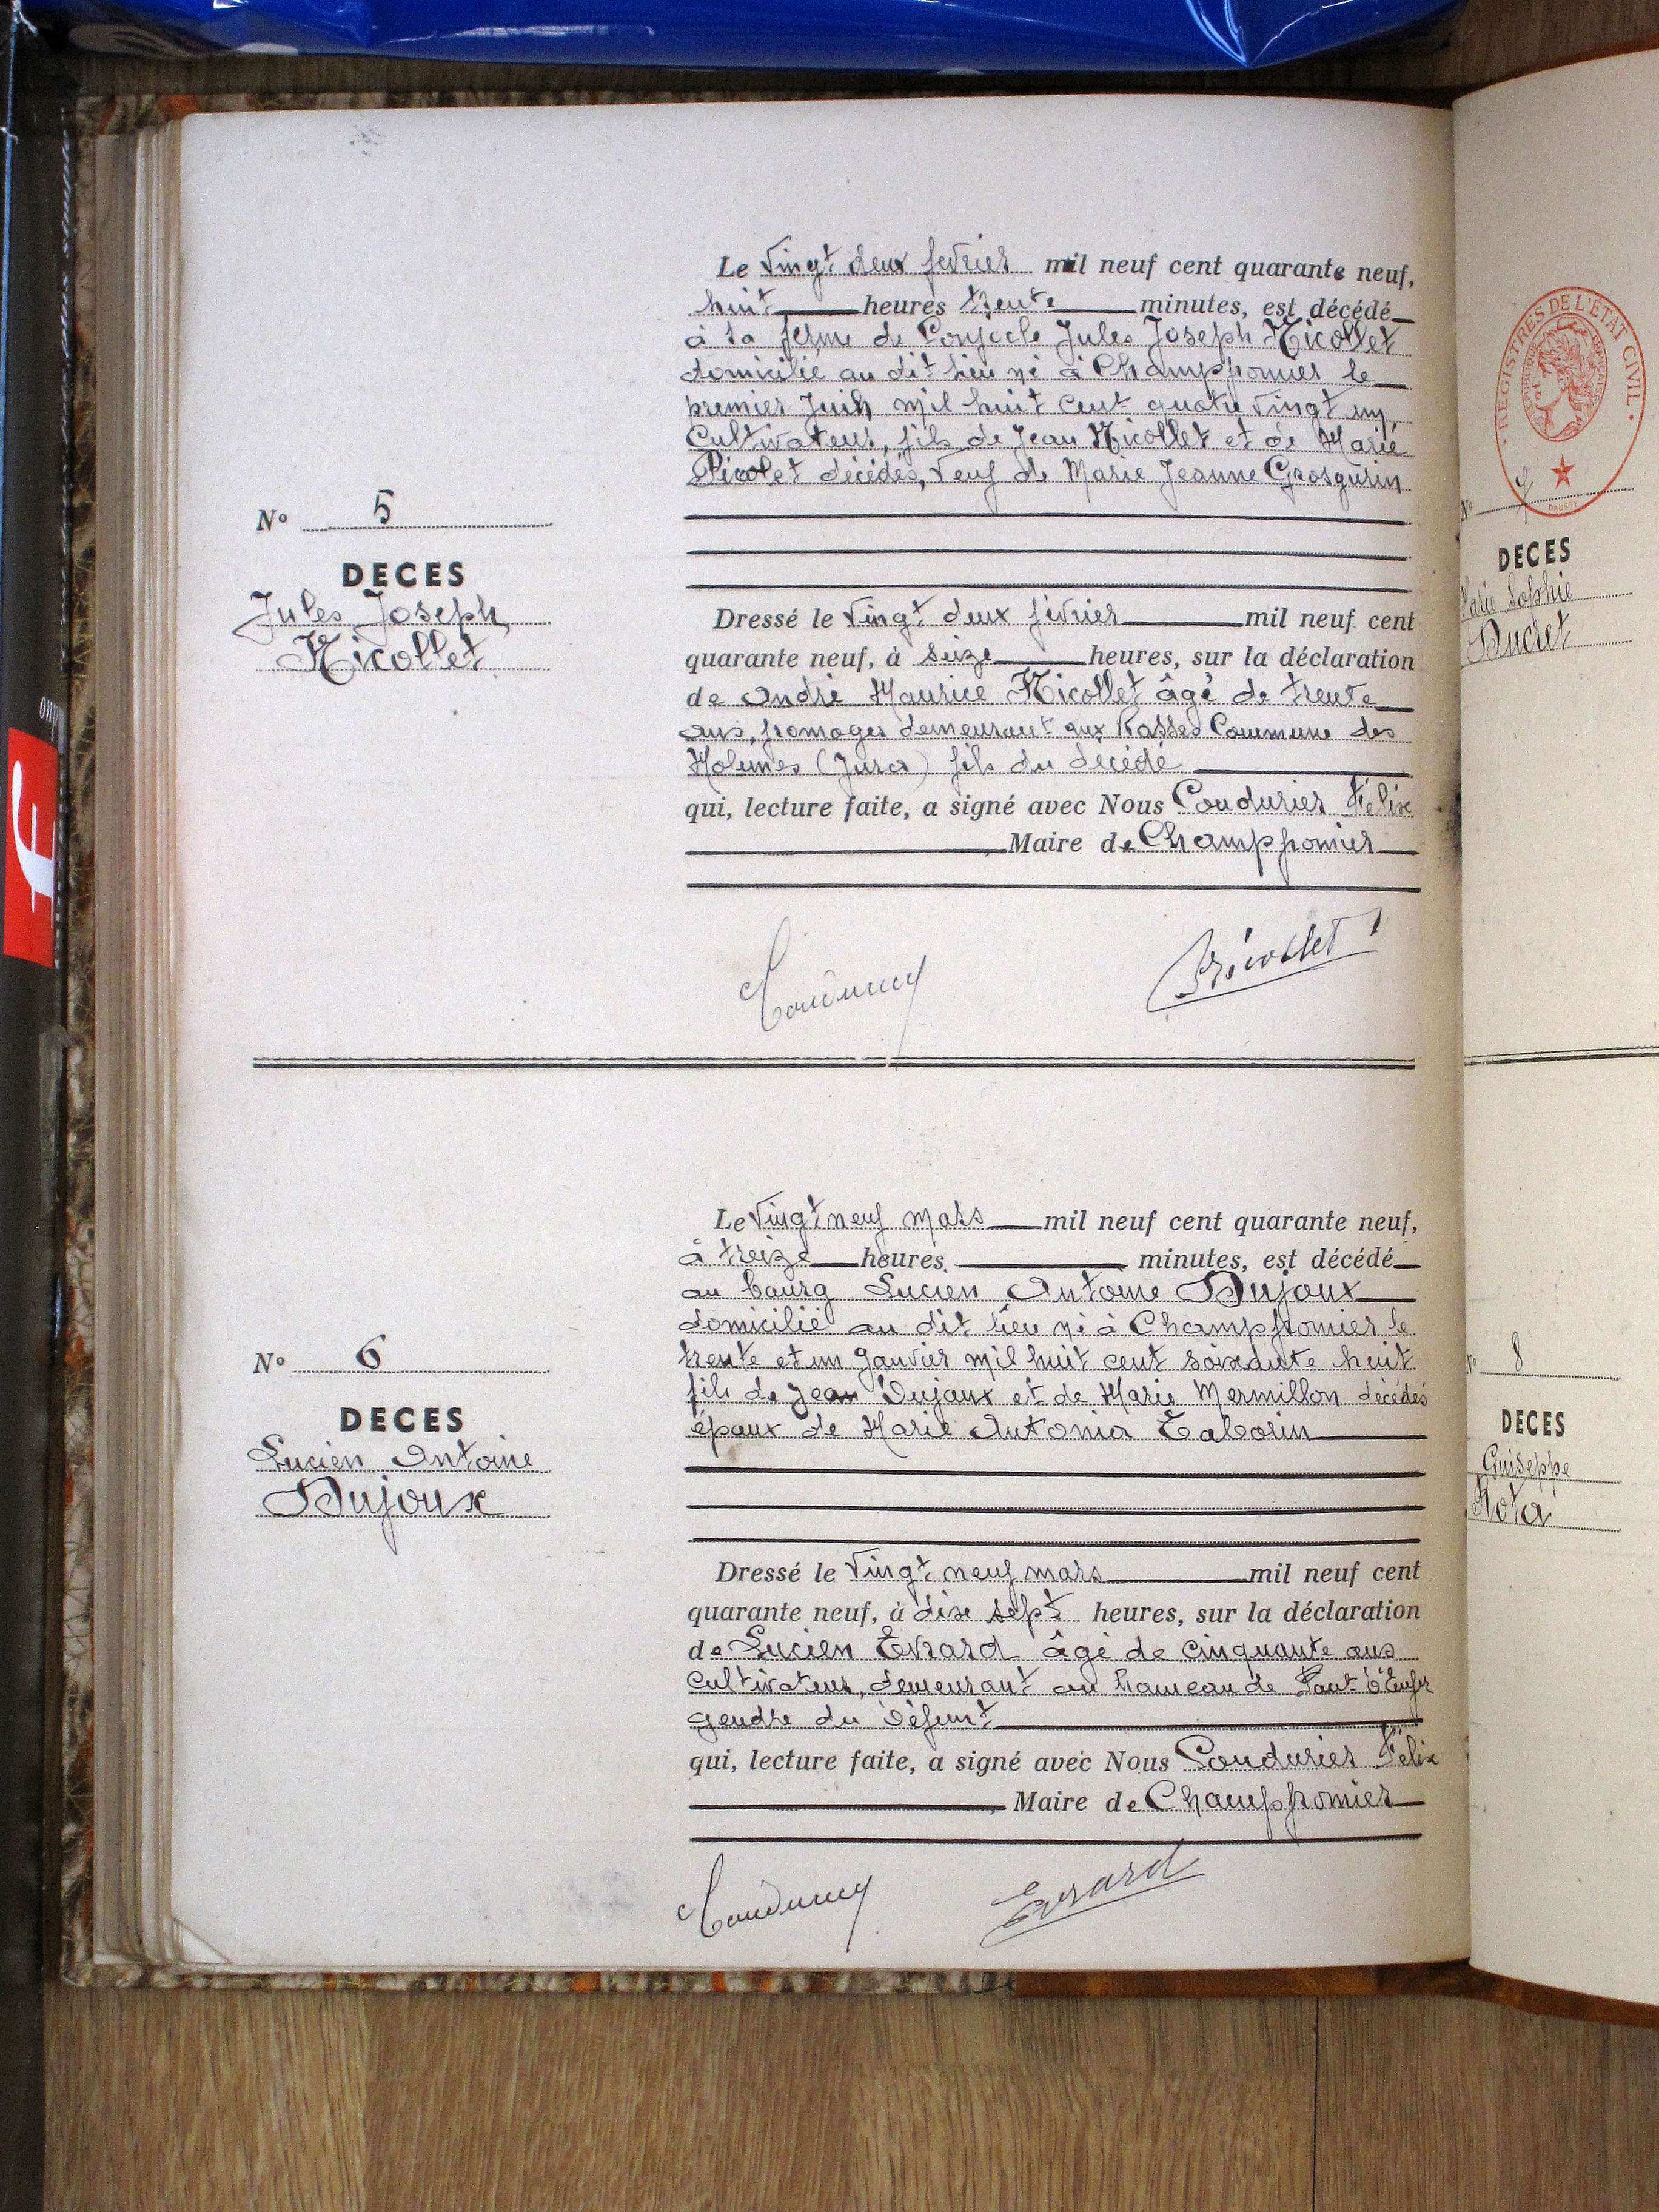 Le Vingt deux février mil neuf cent quarante neuf,
huit heures trente minutes, est décédé
à sa ferme de Jules Joseph Nicollet
domicilié au dit lieu né à Champfromier le
premier Juin mil huit cent quatre vingt un
Cultivateur, fils de Jean Nicollet et de Marie
Nicolet décédés, veuf de Marie Jeanne Grosgurin
N° 5
DECES
Jules Joseph
Nicollet
Dressé le Vingt deux février mil neuf cent
quarante neuf, à seize heures, sur la déclaration
de André Maurice Nicollet âgé de trente
ans, fromager demeurant aux Rasses Commune des
Molunes (Jura) fils du décédé
qui, lecture faite, a signé avec Nous Coudurier Félix
Maire de Champfromier
Coudurier
Nicollet
Le Vingt neuf mars mil neuf cent quarante neuf,
à treize heures minutes, est décédé
au bourg Lucien Antoine Dujoux
domicilié au dit lieu né à Champfromier le
trente et un Janvier mil huit cent soixante huit
fils de Jean Dujoux et de Marie Mermillon décédés
époux de Marie Antonia Taborin
N° 6
DECES
Lucien Antoine
Dujoux
Dressé le Vingt neuf mars mil neuf cent
quarante neuf, à dix sept heures, sur la déclaration
de Lucien Evrard âgé de cinquante ans
cultivateur, demeurant au hameau de Pont d'Enfer
gendre du défunt
qui, lecture faite, a signé avec Nous Coudurier Félix
Maire de Champfromier
Coudurier
Evrard
REGISTRES DE L'ETAT CIVIL
N° 7
DECES
Marie Sophie
Ducret
N° 8
DECES
Guiseppe
Rota